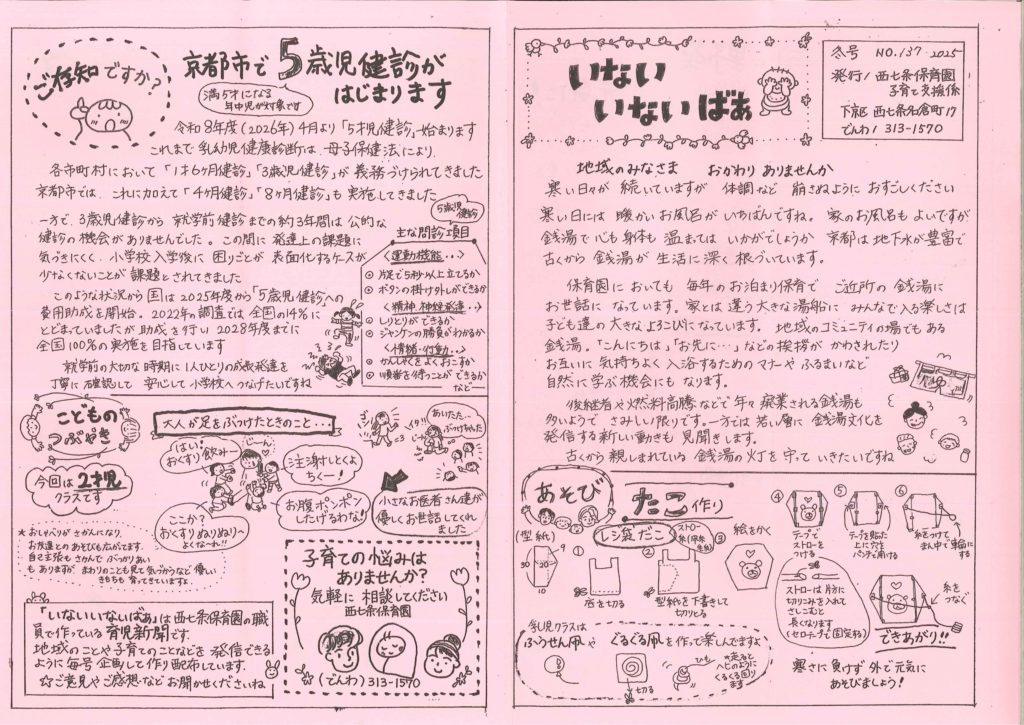 いない
いないばぁ
冬号 NO.137.2025
発行/ 西七条保育園
子育て支援係
下京区 西七条名倉町17
でんわ/ 313-1570
地域のみなさま おかわり ありませんか
寒い日々が 続いていますが 体調など 崩さぬように おすごしください
寒い日には 暖かいお風呂が いちばんですね。 家のお風呂も よいですが
銭湯で 心も身体も 温まっては いかがでしょうか 京都は地下水が豊富で
古くから 銭湯が 生活に 深く 根づいています。
保育園に おいても 毎年のお泊まり保育で ご近所の 銭湯に
お世話に なっています。 家とは 違う 大きな湯船に みんなで入る楽しさは
子ども達の大きなよろこびになっています。 地域のコミュニティの場でもある
銭湯。「こんにちは」「お先に…」などの挨拶が かわされたり
お互いに 気持ちよく 入浴するためのマナーや ふるまいなど
自然に学ぶ機会にも なります。
後継者や燃料高騰などで 年々 廃業される銭湯も
多いようで さみしい限りです。一方では 若い層に 銭湯文化を
発信する新しい動きも 見聞きします。
古くから 親しまれている 銭湯の 灯を 守って いきたいですね
あそび
たこ作り
レジ袋だこ
(型紙)
9
30
10
20
①
底を切る
②
型紙を下書きして
切りとる
ストロー
③
絵をかく
④
テープで
ストローを
つける
⑤
テープを貼った
上に穴を
パンチで開ける
⑥
糸をつけて
まん中で輪にする
ストローは片方に
切りこみを入れて
さしこむと
長くなります
(セロテープで固定する)
糸を
つなぐ
できあがり!!
乳児クラスは
ふうせん凧や ぐるぐる凧を作って楽しんでますよ
切る
ひも
走ると
ヘビのように
くるくる回り
ます
寒さに 負けず 外で 元気に
あそびましょう!
ご存知ですか?
京都市で 5歳児健診が
はじまります
満5才になる
年中児が対象です
令和8年度(2026年)4月より「5才児健診」始まります
これまで 乳幼児健康診断は 母子保健法により、
各市町村において「1才6ヶ月健診」「3歳児健診」が義務づけられてきました
京都市では、これに加えて「4ヶ月健診」「8ヶ月健診」も 実施してきました
一方で、3歳児健診から 就学前健診までの約3年間は 公的な
健診の機会がありませんでした。この間に 発達上の課題に
気づきにくく、小学校入学後に 困りごとが 表面化するケースが
少なくないことが 課題とされてきました
このような状況から 国は 2025年度から「5歳児健診」への
費用助成を開始。2022年の調査では 全国の14%に
とどまっていましたが 助成を行い 2028年度までに
全国100%の実施を目指しています
就学前の大切な時期に 1人ひとりの成長発達を
丁寧に確認して 安心して小学校へつなげたいですね
5歳児健診
主な問診項目
<運動機能...>
◎ 片足で5秒以上立てるか
◎ ボタンの掛け外しができるか
<精神・神経発達...>
◎ しりとりができるか
◎ ジャンケンの勝負がわかるか
<情緒・行動...>
◎ かんしゃくをよくおこすか
◎ 順番を待つことができるか
など…
こどもの
つぶやき
今回は2才児
クラスです
大人が足をぶつけたときのこと...
はい!
おくすり飲みー
じーん
注射しとくよ
ちくー!
お腹ポンポン
したげるわな!
ここか?
おくすりぬりぬり〜
よくな〜れ!!
イタ!!
あいたた…
ぶつけちゃった
小さなお医者さん達が
優しくお世話してくれ
ました
★おしゃべりがさかんになり、
お友達とのあそびも広がってます。
自己主張もさかんで ぶつかりあい
も ありますが、まわりのことも見て気づかうなど優しい
きもちも育ってきていますよ。
「いないいないばぁ」は西七条保育園の職
員で作っている 育児新聞です。
地域のことや子育てのことなどを 発信できる
ように 毎号 企画して作り配布しています。
☆ご意見やご感想など お聞かせくださいね
子育ての悩みは
ありませんか?
気軽に 相談してください
西七条保育園
☆(でんわ)313-1570